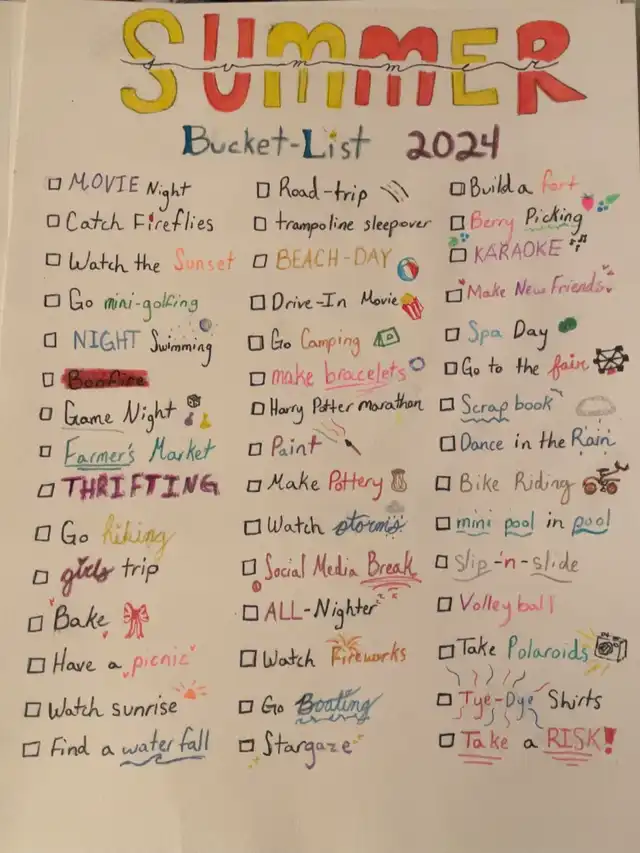 SUMMER
summer
Bucket-List 2024
MOVIE Night
Catch Fireflies
Watch the Sunset
Go mini-golfing
NIGHT Swimming
Bonfire
Game Night
Farmer's Market
THRIFTING
Go hiking
girls trip
Bake
Have a picnic
Watch sunrise
Find a waterfall
Road-trip
trampoline sleepover
BEACH-DAY
Drive-In Movie
Go Camping
make bracelets
Harry Potter marathon
Paint
Make Pottery
Watch storms
Social Media Break
ALL-Nighter
Watch Fireworks
Go Boating
Stargaze
Build a fort
Berry Picking
KARAOKE
Make New Friends
Spa Day
Go to the fair
Scrapbook
Dance in the Rain
Bike Riding
mini pool in pool
Slip-'n-slide
Volleyball
Take Polaroids
Tye-Dye Shirts
Take a RISK!